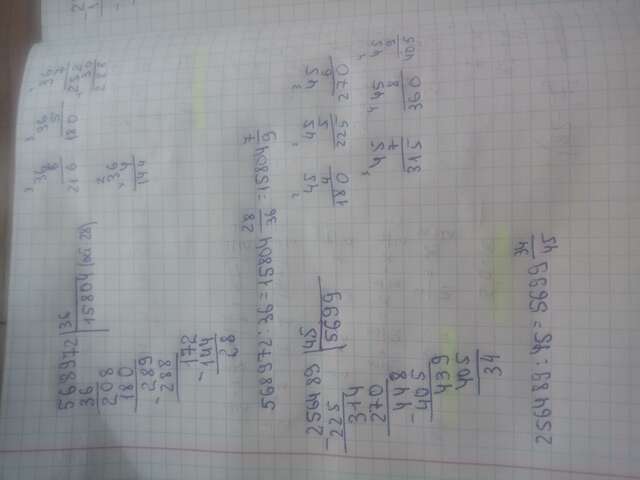 568972 |36
36 15804 (ост 28)
208
180
- 289
288
172
- 144
28
36
6
216
36
5
180
36
7
252
36
288
36
4
144
568972 : 36 = 15804 28/36 = 15804 7/9
256489 |45
- 225 5699
314
270
448
- 405
439
405
34
45
4
180
45
5
225
45
6
270
45
7
315
45
8
360
45
9
405
256489 : 45 = 5699 34/45